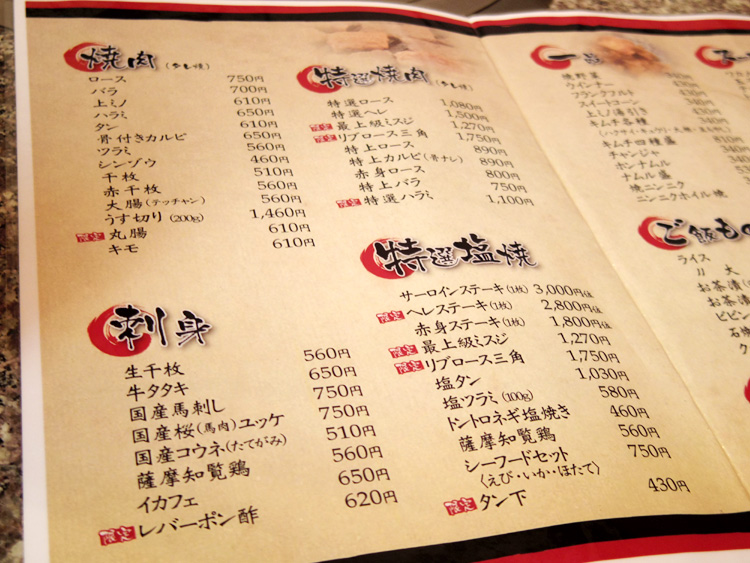 焼肉(タレ焼)
ロース 750円
バラ 700円
上ミノ 610円
ハラミ 650円
タン 610円
骨付きカルビ 650円
ツラミ 560円
シンゾウ 460円
千枚 510円
赤千枚 560円
大腸(テッチャン) 560円
うす切り(200g) 1,460円
限定 丸腸 610円
キモ 610円
刺身
生千枚 560円
牛タタキ 650円
国産馬刺し 750円
国産桜(馬肉)ユッケ 750円
国産コウネ(たてがみ) 510円
薩摩知覧鶏 560円
イカフェ 650円
限定 レバーポン酢 620円
特選焼肉(タレ焼)
特選ロース 1,080円
特選ヘレ 1,500円
限定 最上級ミスジ 1,270円
限定 リブロース三角 1,750円
特上ロース 890円
特上カルビ(骨ナシ) 890円
赤身ロース 800円
特上バラ 750円
限定 特選ハラミ 1,100円
特選塩焼
サーロインステーキ(1枚) 3,000円
限定 ヘレステーキ(1枚) 2,800円
赤身ステーキ(1枚) 1,800円
限定 最上級ミスジ 1,270円
限定 リブロース三角 1,750円
塩タン 1,030円
塩ツラミ(100g) 580円
トントロネギ塩焼き 460円
薩摩知覧鶏 560円
シーフードセット 750円
〈えび・いか・ほたて〉
限定 タン下 430円
一品
焼野菜
ウインナー
フランクフルト
スイートコーン
上ミノ湯引き
キムチ各種
(ハクサイ・キュウリ・大根・
キムチ四種盛
チャンジャ
ホンナムル
ナムル盛
焼ニンニク
ニンニクホイル焼
ご飯もの
ライス
〃 大
お茶漬
お茶漬
ビビン
石焼
ク
スー